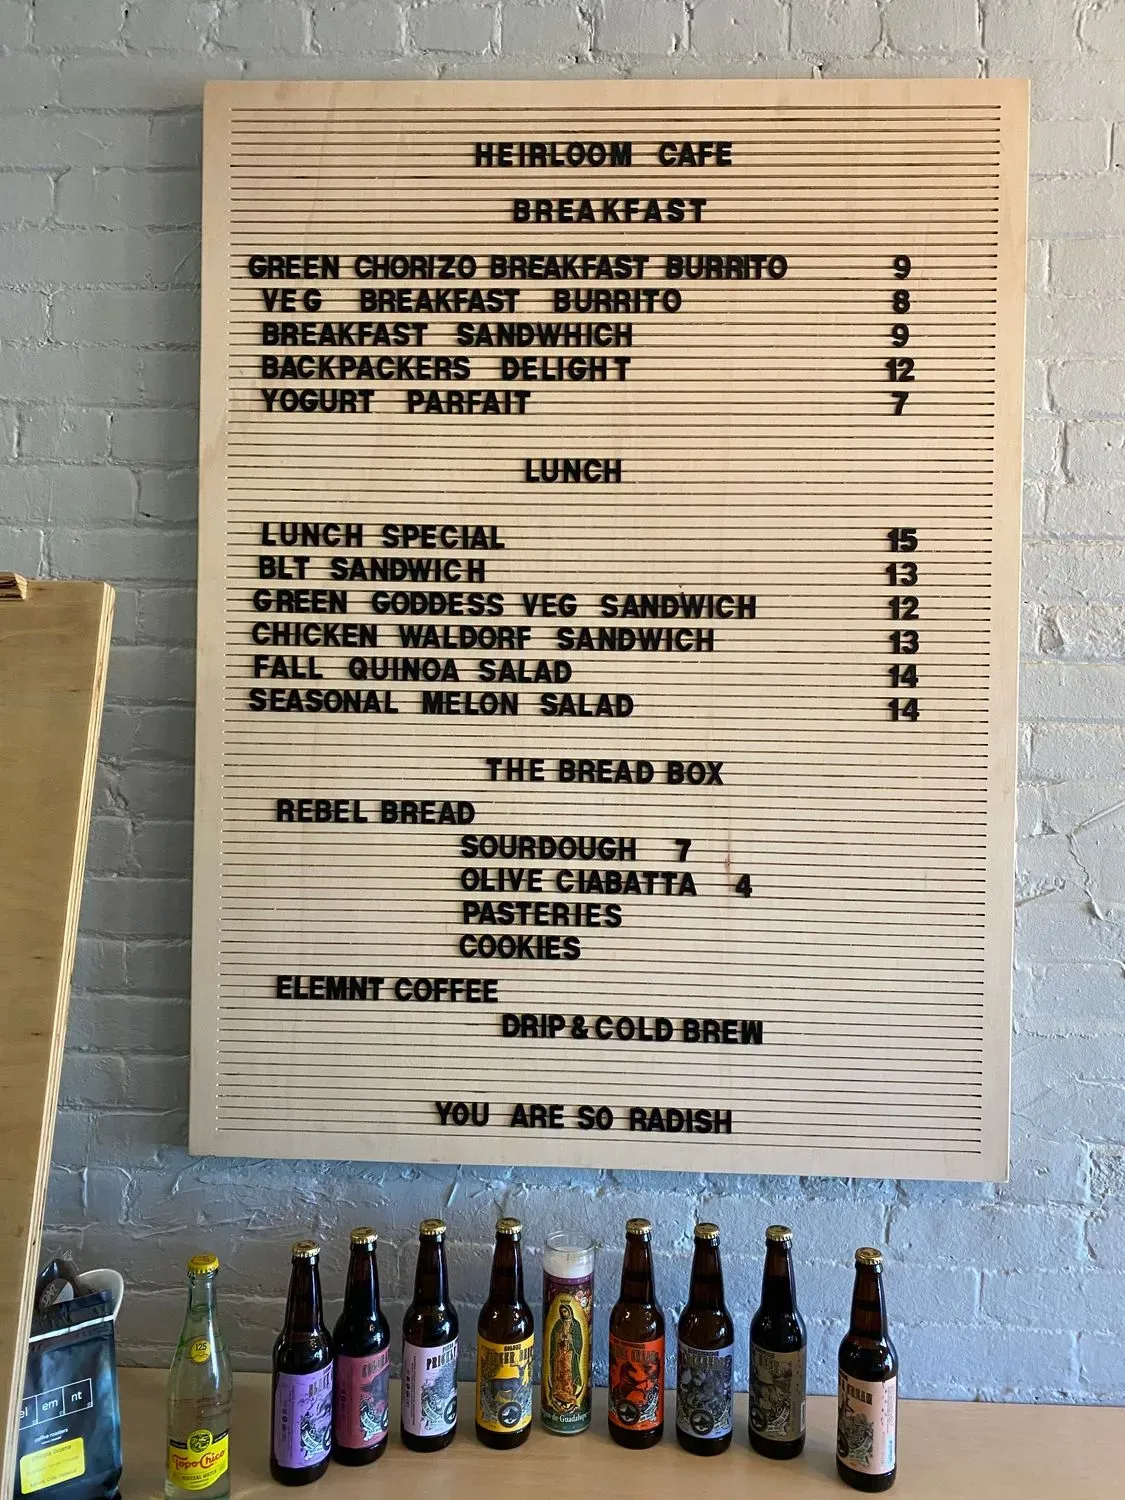 HEIRLOOM CAFE
BREAKFAST
GREEN CHORIZO BREAKFAST BURRITO 9
VEG BREAKFAST BURRITO 8
BREAKFAST SANDWHICH 9
BACKPACKERS DELIGHT 12
YOGURT PARFAIT 7
LUNCH
LUNCH SPECIAL 15
BLT SANDWICH 13
GREEN GODDESS VEG SANDWICH 12
CHICKEN WALDORF SANDWICH 13
FALL QUINOA SALAD 14
SEASONAL MELON SALAD 14
THE BREAD BOX
REBEL BREAD
SOURDOUGH 7
OLIVE CIABATTA 4
PASTERIES
COOKIES
ELEMNT COFFEE
DRIP & COLD BREW
YOU ARE SO RADISH
el em nt
coffee roasters
125
Topo Chico
MINERAL WATER
BLACK
PRICKLY
GINGER BEER
de Guadalupe
CREAM